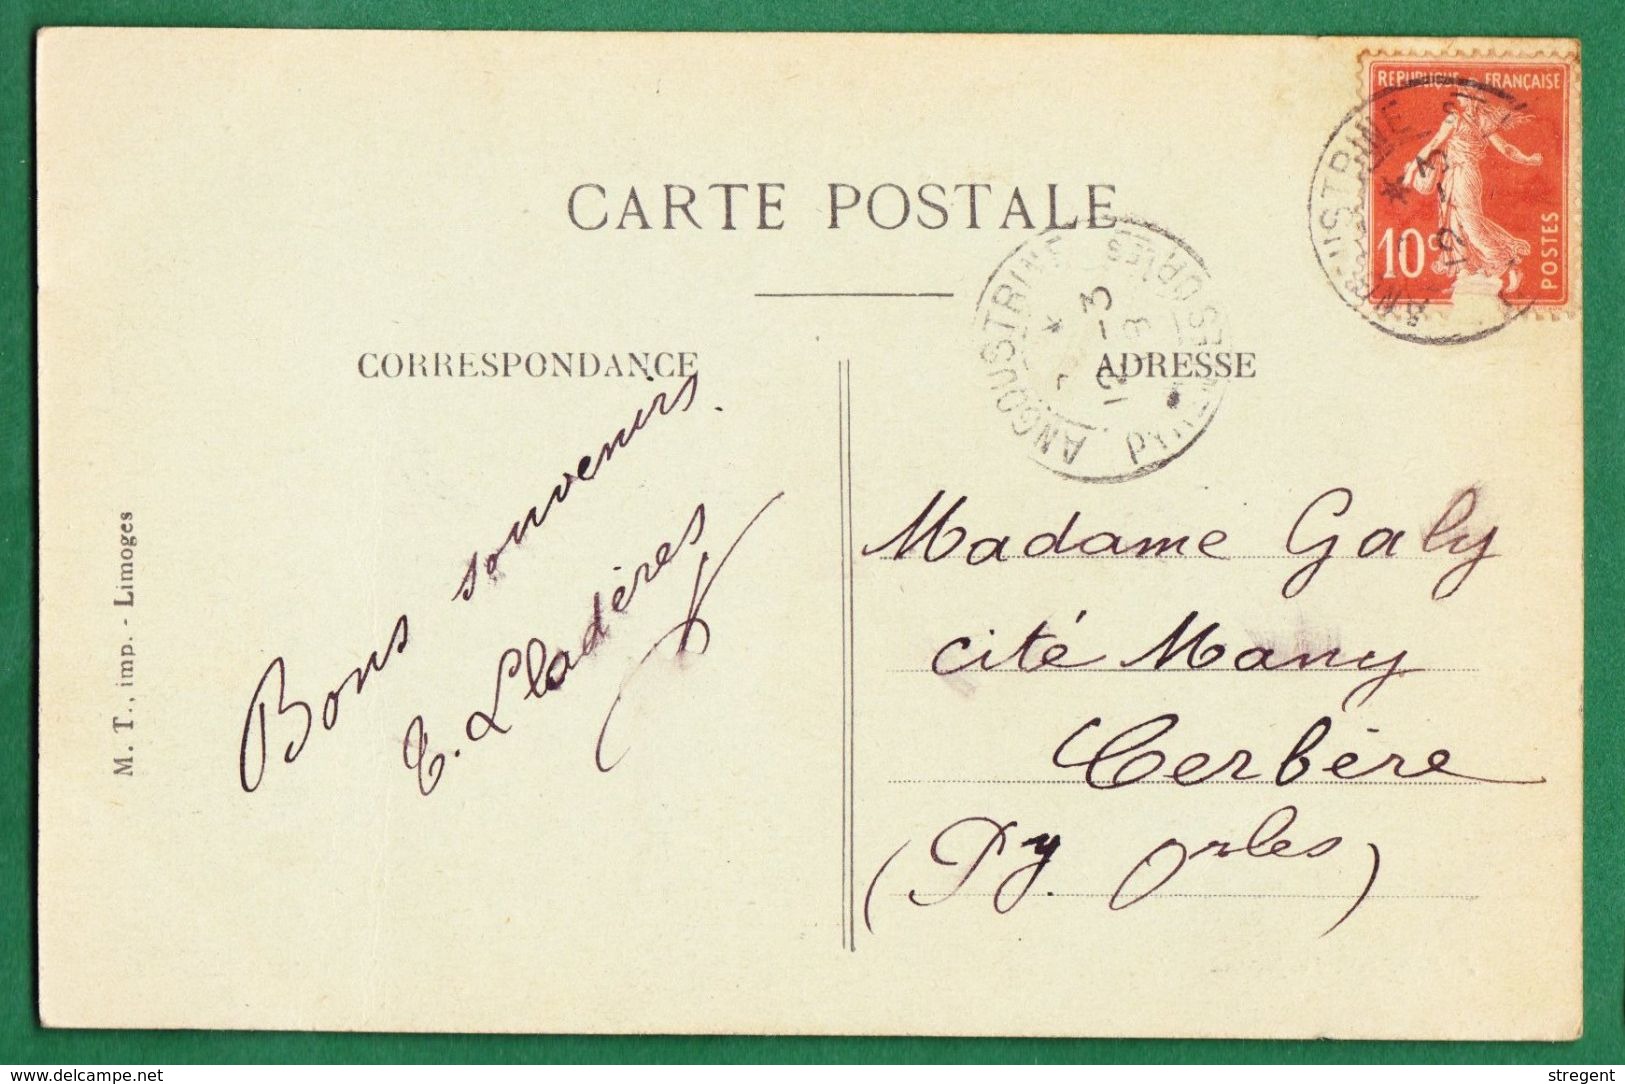 REPUBLIQUE FRANÇAISE
10c
POSTES
CARTE POSTALE
CORRESPONDANCE
ADRESSE
ANGOUSTRINE
* -3
12
PYRÉNÉES ORIES
Bons souvenirs.
E. Lladères
Madame Galy
cité Many
Cerbère
(Py. Orles)
M. T., imp. - Limoges
www.delcampe.net
stregent